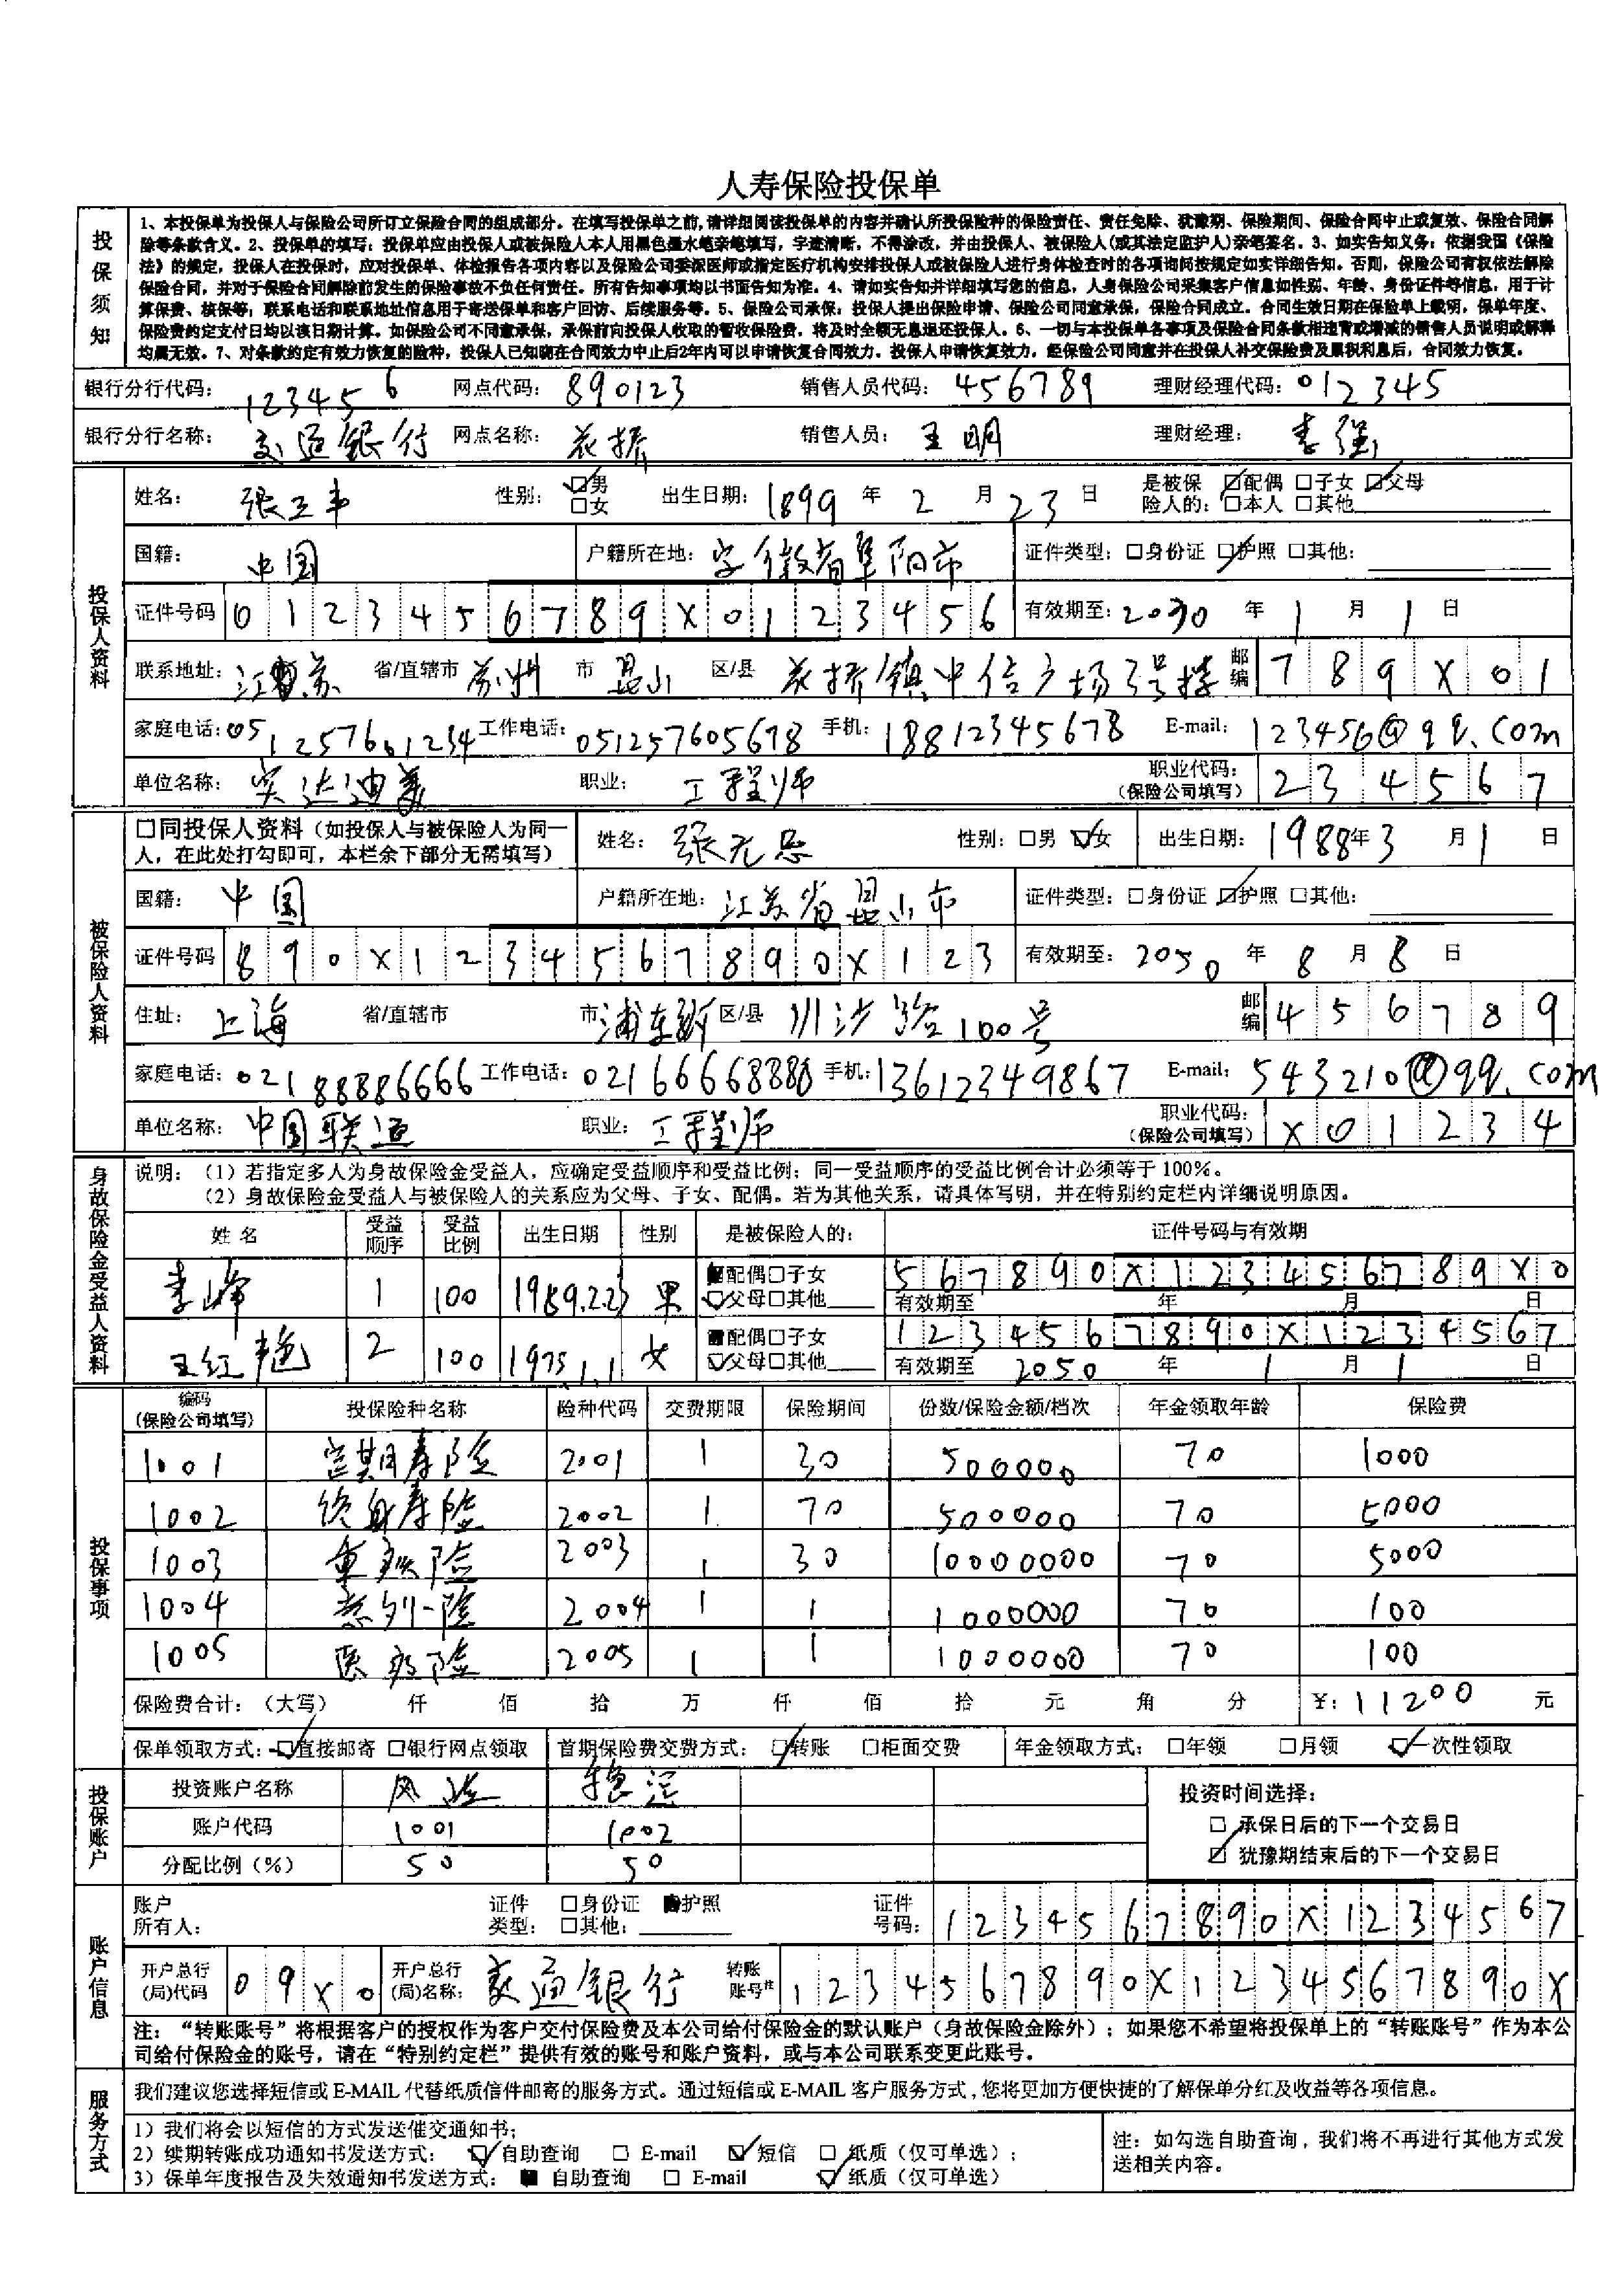 人寿保险投保单
投保须知
1、本投保单为投保人与保险公司所订立保险合同的组成部分。在填写投保单之前,请详细阅读投保单的内容并确认所投保险种的保险责任、责任免除、犹豫期、保险期间、保险合同中止或复效、保险合同解
除等条款含义。2、投保单的填写：投保单应由投保人或被保险人本人用黑色墨水笔亲笔填写，字迹清晰，不得涂改，并由投保人、被保险人(或其法定监护人)亲笔签名。3、如实告知义务：依据我国《保险
法》的规定，投保人在投保时，应对投保单、体检报告各项内容以及保险公司委派医师或指定医疗机构安排投保人或被保险人进行身体检查时的各项询问按规定如实详细告知。否则，保险公司有权依法解除
保险合同，并对于保险合同解除前发生的保险事故不负任何责任。所有告知事项均以书面告知为准。4、请如实告知并详细填写您的信息，人身保险公司采集客户信息如性别、年龄、身份证件等信息，用于计
算保费、核保等；联系电话和联系地址信息用于寄送保单和客户回访、后续服务等。5、保险公司承保：投保人提出保险申请、保险公司同意承保，保险合同成立。合同生效日期在保险单上载明，保单年度、
保险费约定支付日均以该日期计算。如保险公司不同意承保，承保前向投保人收取的暂收保险费，将及时全额无息退还投保人。6、一切与本投保单各事项及保险合同条款相违背或增减的销售人员说明或解释
均属无效。7、对条款约定有效力恢复的险种，投保人已知晓在合同效力中止后2年内可以申请恢复合同效力。投保人申请恢复效力，经保险公司同意并在投保人补交保险费及累积利息后，合同效力恢复。
银行分行代码： 123456 网点代码： 890123 销售人员代码： 456789 理财经理代码： 012345
银行分行名称： 交通银行 网点名称： 花桥 销售人员： 王明 理财经理： 李强
投保人资料
姓名： 张三丰 性别： 男 女 出生日期： 1899 年 2 月 23 日 是被保险人的： 配偶 子女 父母 本人 其他
国籍： 中国 户籍所在地： 安徽省阜阳市 证件类型： 身份证 护照 其他：
证件号码 0123456789X0123456 有效期至： 2030 年 1 月 1 日
联系地址： 江苏 省/直辖市 苏州 市 昆山 区/县 花桥镇中信广场3号楼 邮编 789X01
家庭电话： 051257601234 工作电话： 051257605678 手机： 18812345678 E-mail： 123456@qq.com
单位名称： 实达迪美 职业： 工程师 职业代码：（保险公司填写） 234567
被保险人资料
同投保人资料（如投保人与被保险人为同一人，在此处打勾即可，本栏余下部分无需填写） 姓名： 张无忌 性别： 男 女 出生日期： 1988 年 3 月 1 日
国籍： 中国 户籍所在地： 江苏省昆山市 证件类型： 身份证 护照 其他：
证件号码 890X1234567890X123 有效期至： 2050 年 8 月 8 日
住址： 上海 省/直辖市 市 浦东新 区/县 川沙路100号 邮编 456789
家庭电话： 02188886666 工作电话： 02166668888 手机： 13612349867 E-mail： 543210@qq.com
单位名称： 中国联通 职业： 工程师 职业代码：（保险公司填写） X01234
身故保险金受益人资料
说明：（1）若指定多人为身故保险金受益人，应确定受益顺序和受益比例；同一受益顺序的受益比例合计必须等于 100%。
（2）身故保险金受益人与被保险人的关系应为父母、子女、配偶。若为其他关系，请具体写明，并在特别约定栏内详细说明原因。
姓名 受益顺序 受益比例 出生日期 性别 是被保险人的： 证件号码与有效期
李峰 1 100 1989.2.23 男 配偶 子女 父母 其他 567890X123456789X0
有效期至 年 月 日
王红艳 2 100 1975.1.1 女 配偶 子女 父母 其他 1234567890X1234567
有效期至 2050 年 1 月 1 日
投保事项
编码（保险公司填写） 投保险种名称 险种代码 交费期限 保险期间 份数/保险金额/档次 年金领取年龄 保险费
1001 定期寿险 2001 1 30 500000 70 1000
1002 终身寿险 2002 1 70 500000 70 5000
1003 重疾险 2003 1 30 10000000 70 5000
1004 意外险 2004 1 1 1000000 70 100
1005 医疗险 2005 1 1 1000000 70 100
保险费合计：（大写） 仟 佰 拾 万 仟 佰 拾 元 角 分 ￥：11200 元
保单领取方式： 直接邮寄 银行网点领取 首期保险费交费方式： 转账 柜面交费 年金领取方式： 年领 月领 一次性领取
投保账户
投资账户名称 稳 投资时间选择：
账户代码 1001 1002 承保日后的下一个交易日
分配比例（%） 50 50 犹豫期结束后的下一个交易日
账户信息
账户所有人： 证件类型： 身份证 护照 其他： 证件号码： 1234567890X1234567
开户总行(局)代码 09X0 开户总行(局)名称： 交通银行 转账账号注 1234567890X1234567890X
注：“转账账号”将根据客户的授权作为客户交付保险费及本公司给付保险金的默认账户（身故保险金除外）；如果您不希望将投保单上的“转账账号”作为本公
司给付保险金的账号，请在“特别约定栏”提供有效的账号和账户资料，或与本公司联系变更此账号。
服务方式
我们建议您选择短信或 E-MAIL 代替纸质信件邮寄的服务方式。通过短信或 E-MAIL 客户服务方式，您将更加方便快捷的了解保单分红及收益等各项信息。
1）我们将会以短信的方式发送催交通知书；
2）续期转账成功通知书发送方式： 自助查询 E-mail 短信 纸质（仅可单选）；
3）保单年度报告及失效通知书发送方式： 自助查询 E-mail 纸质（仅可单选）
注：如勾选自助查询，我们将不再进行其他方式发
送相关内容。